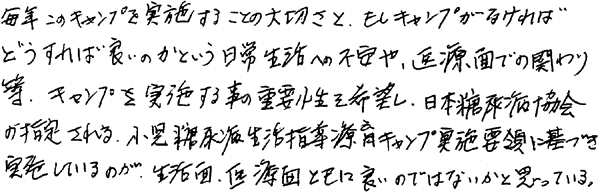 毎年このキャンプを実施することの大切さと、もしキャンプがなければ
どうすれば良いのかという日常生活への不安や、医源面での関わり
等、キャンプを実施する事の重要性を希望し、日本糖尿病協会
が指定される、小児糖尿病生活指導療育キャンプ実施要領に基づき
実施しているのが、生活面、医療面ともに良いのではないかと思っている。